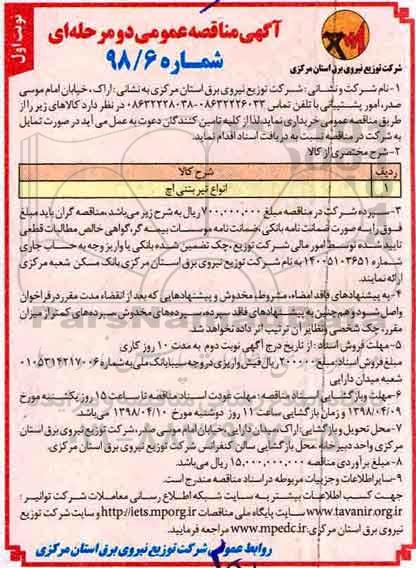 نوبت اول
آگهی مناقصه عمومی دو مرحله‌ای
شماره ۹۸/۶
شرکت توزیع نیروی برق استان مرکزی
۱- نام شرکت و نشانی : شرکت توزیع نیروی برق استان مرکزی به نشانی : اراک ، خیابان امام موسی
صدر، امور پشتیبانی با تلفن تماس ۰۸۶۳۲۲۲۶۰۳۳-۰۸۶۳۲۲۲۸۰۳۸ در نظر دارد کالاهای زیر را از
طریق مناقصه عمومی خریداری نماید، لذا از کلیه تامین کنندگان دعوت به عمل می آید در صورت تمایل
به شرکت در مناقصه نسبت به دریافت اسناد اقدام نمایند.
۲- شرح مختصری از کالا
ردیف شرح کالا
۱ انواع تیر بتنی اچ
۳- سپرده شرکت در مناقصه مبلغ ۷۰۰,۰۰۰,۰۰۰ ریال به شرح زیر می‌باشد، مناقصه گران باید مبلغ
فوق را به صورت ضمانت نامه بانکی، ضمانت نامه موسسات بیمه گر، گواهی خالص مطالبات قطعی
تایید شده توسط امور مالی شرکت توزیع، چک تضمین شده بانکی یا واریز وجه به حساب جاری
شماره ۱۴۰۰۵۱۰۳۶۵۱ به نام شرکت توزیع نیروی برق استان مرکزی بانک مسکن شعبه مرکزی
ارائه نمایند.
۴- به پیشنهادهای فاقد امضاء، مشروط، مخدوش و پیشنهادهایی که بعد از انقضاء مدت مقرر در فراخوان
واصل شود و همچنین به پیشنهادهای فاقد سپرده، سپرده‌های مخدوش، سپرده‌های کمتر از میزان
مقرر، چک شخصی و نظایر آن ترتیب اثر داده نخواهد شد.
۵- مهلت فروش اسناد : از تاریخ درج آگهی نوبت دوم به مدت ۱۰ روز کاری
مبلغ فروش اسناد: مبلغ ۲۰۰۰۰۰ ریال فیش واریزی در وجه سیبا بانک ملی به شماره ۰۱۰۵۳۱۴۲۱۷۰۰۶
شعبه میدان دارایی
۶- مهلت و بازگشایی اسناد مناقصه : مهلت عودت اسناد مناقصه تا ساعت ۱۵ روز یکشنبه مورخ
۱۳۹۸/۰۴/۰۹ و زمان بازگشایی ساعت ۱۱ روز دوشنبه مورخ ۱۳۹۸/۰۴/۱۰ می‌باشد.
۷- محل تحویل و بازگشایی : اراک، میدان دارایی، خیابان امام موسی صدر، شرکت توزیع نیروی برق استان
مرکزی واحد دبیرخانه، محل بازگشایی سالن کنفرانس شرکت توزیع نیروی برق استان مرکزی.
۸- مبلغ برآوردی مناقصه ۱۵,۰۰۰,۰۰۰,۰۰۰ ریال می‌باشد.
۹- سایر اطلاعات و جزییات مربوطه در اسناد مناقصه مندرج است.
جهت کسب اطلاعات بیشتر به سایت شبکه اطلاع رسانی معاملات شرکت توانیر :
www.tavanir.org.ir سایت پایگاه ملی مناقصات http://iets.mporg.ir و سایت شرکت توزیع
نیروی برق استان مرکزی: www.mpedc.ir مراجعه فرمایید.
روابط عمومی شرکت توزیع نیروی برق استان مرکزی